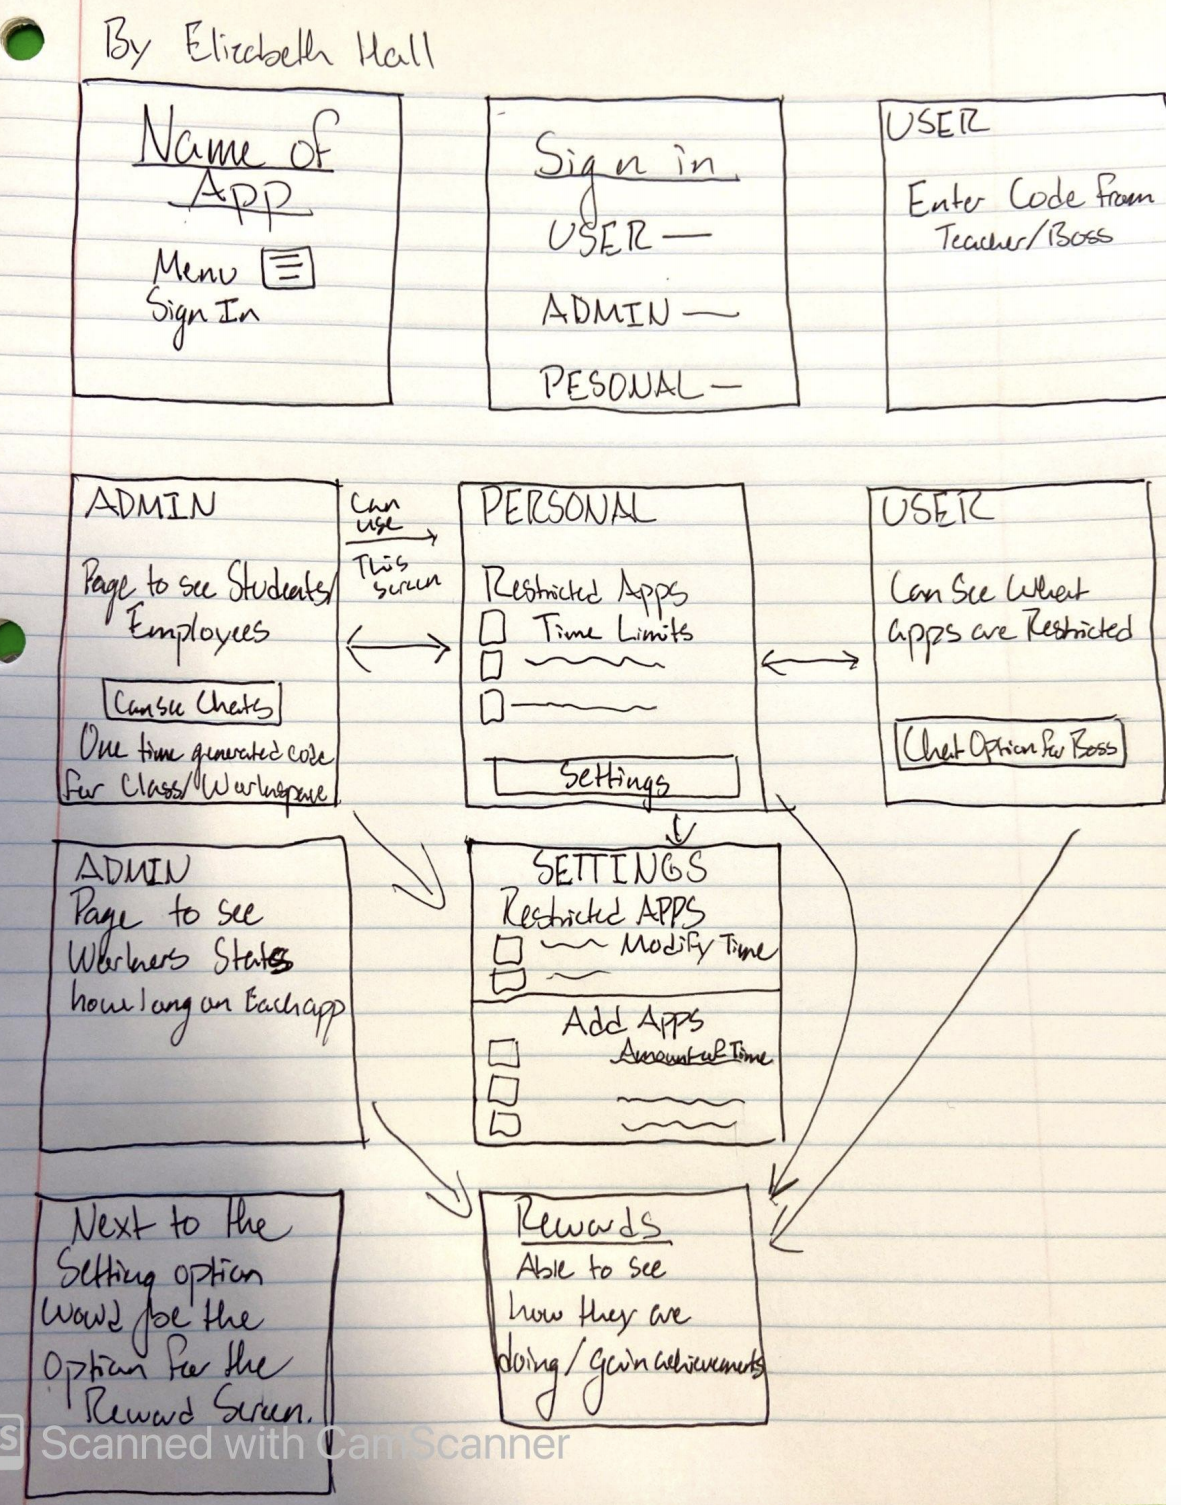 By Elizabeth Hall
Name of
App
Menu
Sign In
Sign in
USER
ADMIN
PESONAL
USER
Enter Code from
Teacher/Boss
ADMIN
Page to see Students/
Employees
Can see Chats
One time generated code
for Class/Workspace
Can
use
This
screen
PERSONAL
Restricted Apps
Time Limits
Settings
USER
Can See What
apps are Restricted
Chat Option for Boss
ADMIN
Page to see
Workers Stats
how long on Each app
SETTINGS
Restricted APPS
Modify Time
Add Apps
Amount of Time
Next to the
Setting option
would be the
option for the
Reward Screen.
Rewards
Able to see
how they are
doing/gain achievements
S Scanned with CamScanner